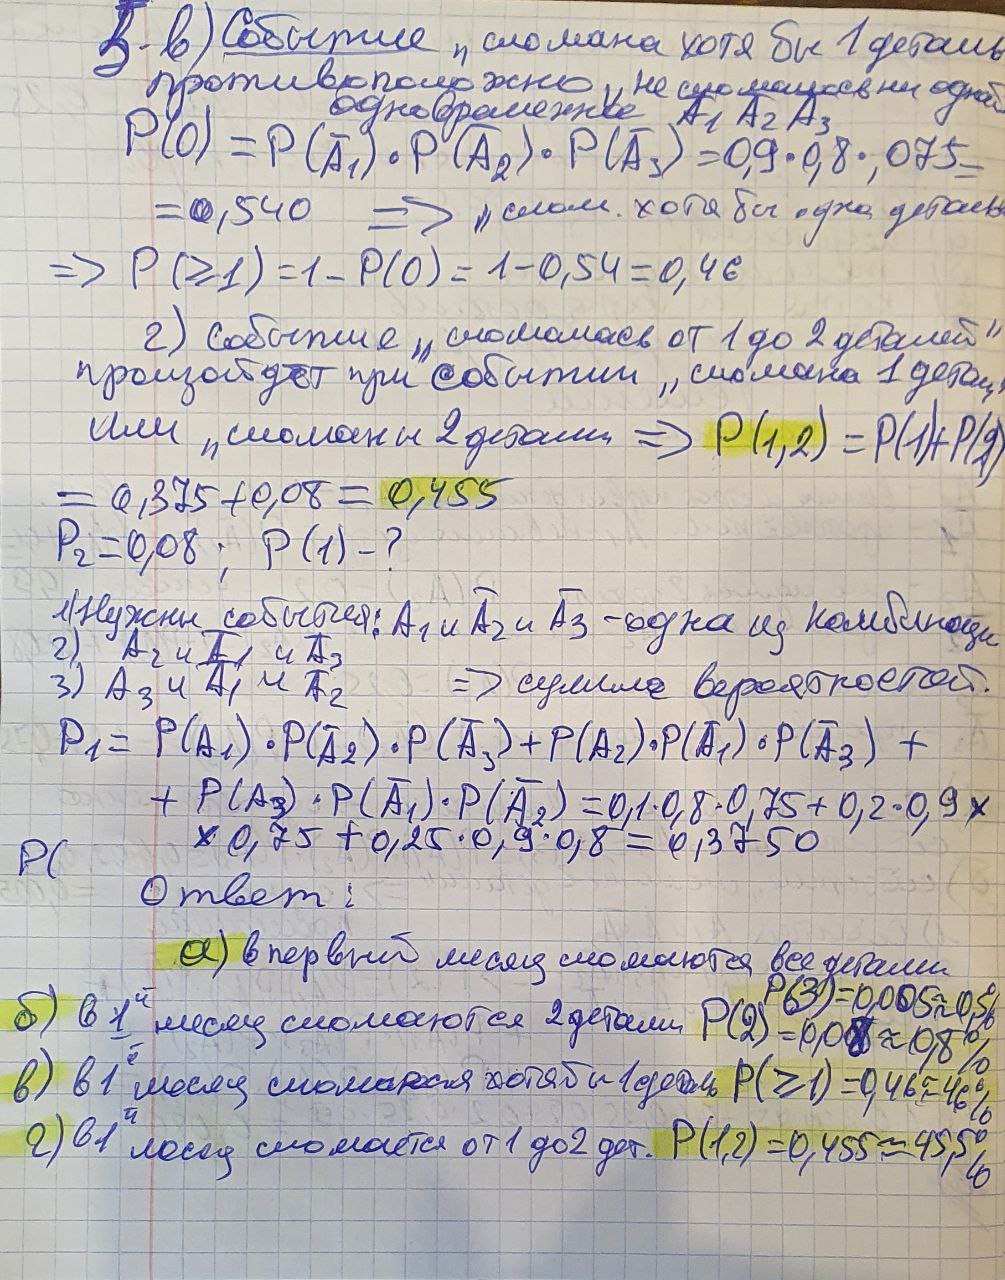 3-в) Событие „сломана хотя бы 1 деталь
противоположно „не сломалась ни одной
одновременно A̅1 A̅2 A̅3
P(0) = P(A̅1)·P(A̅2)·P(A̅3) = 0,9·0,8·,075=
=0,540 => „слом. хотя бы одна деталь
=> P(≥1) = 1 - P(0) = 1 - 0,54 = 0,46
г) Событие „сломалась от 1 до 2 деталей"
произойдет при событии „сломана 1 детал"
или „сломаны 2 детали => P(1,2) = P(1)+P(2)
= 0,375+0,08 = 0,455
P2=0,08; P(1) - ?
1) Нужны события: A1 и A̅2 и A̅3 - одна из комбинаци
2) A2 и A̅1 и A̅3
3) A3 и A̅1 и A̅2 => сумма вероятностей.
P1 = P(A1)·P(A̅2)·P(A̅3) + P(A2)·P(A̅1)·P(A̅3) +
+ P(A3)·P(A̅1)·P(A̅2) = 0,1·0,8·0,75 + 0,2·0,9 x
x 0,75 + 0,25·0,9·0,8 = 0,3750
P(
Ответ:
а) в первый месяц сломаются все детали
P(3)=0,005≈0,5%
б) в 1й месяц сломаются 2 детали P(2)=0,08≈0,8%
в) в 1й месяц сломается хотя бы 1 деталь P(≥1)=0,46≈46%
г) в 1й месяц сломается от 1 до 2 дет. P(1,2)=0,455≈45,5%